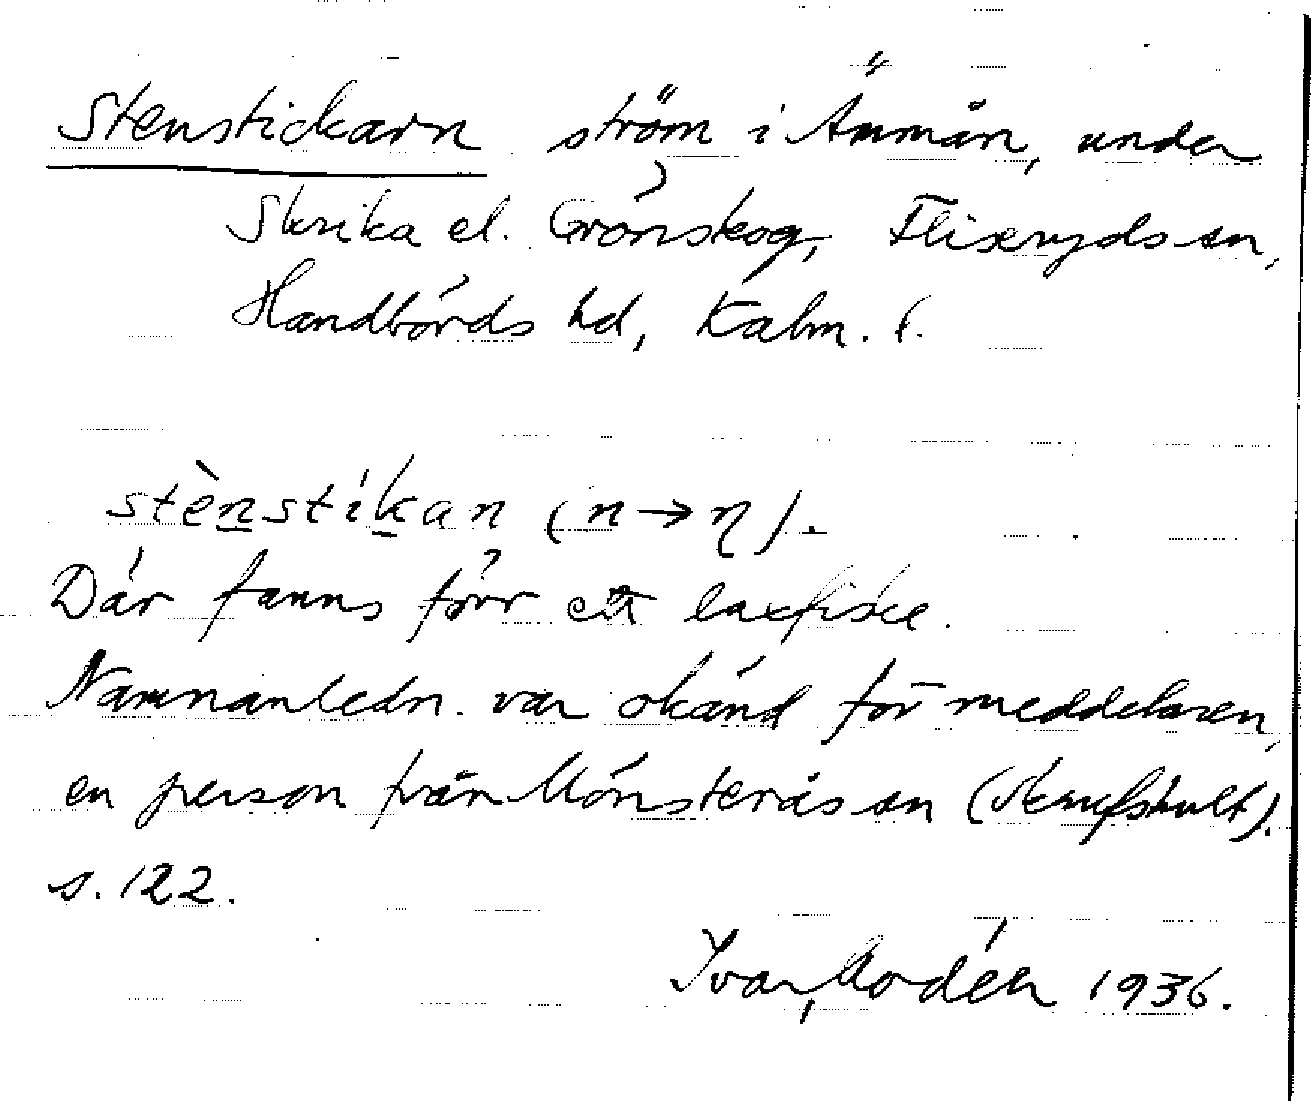 Stenstickarn ström i Ämmån, under
Skrika el. Grönskog, Fliseryds sn,
Handbörds hd, Kalm. l.
stènstikan (n→η).
Där fanns förr ett laxfiske.
Namnanledn. var okänd för meddelaren,
en person från Mönsterås sn (Skrufshult).
s. 122.
Ivar Modéer 1936.